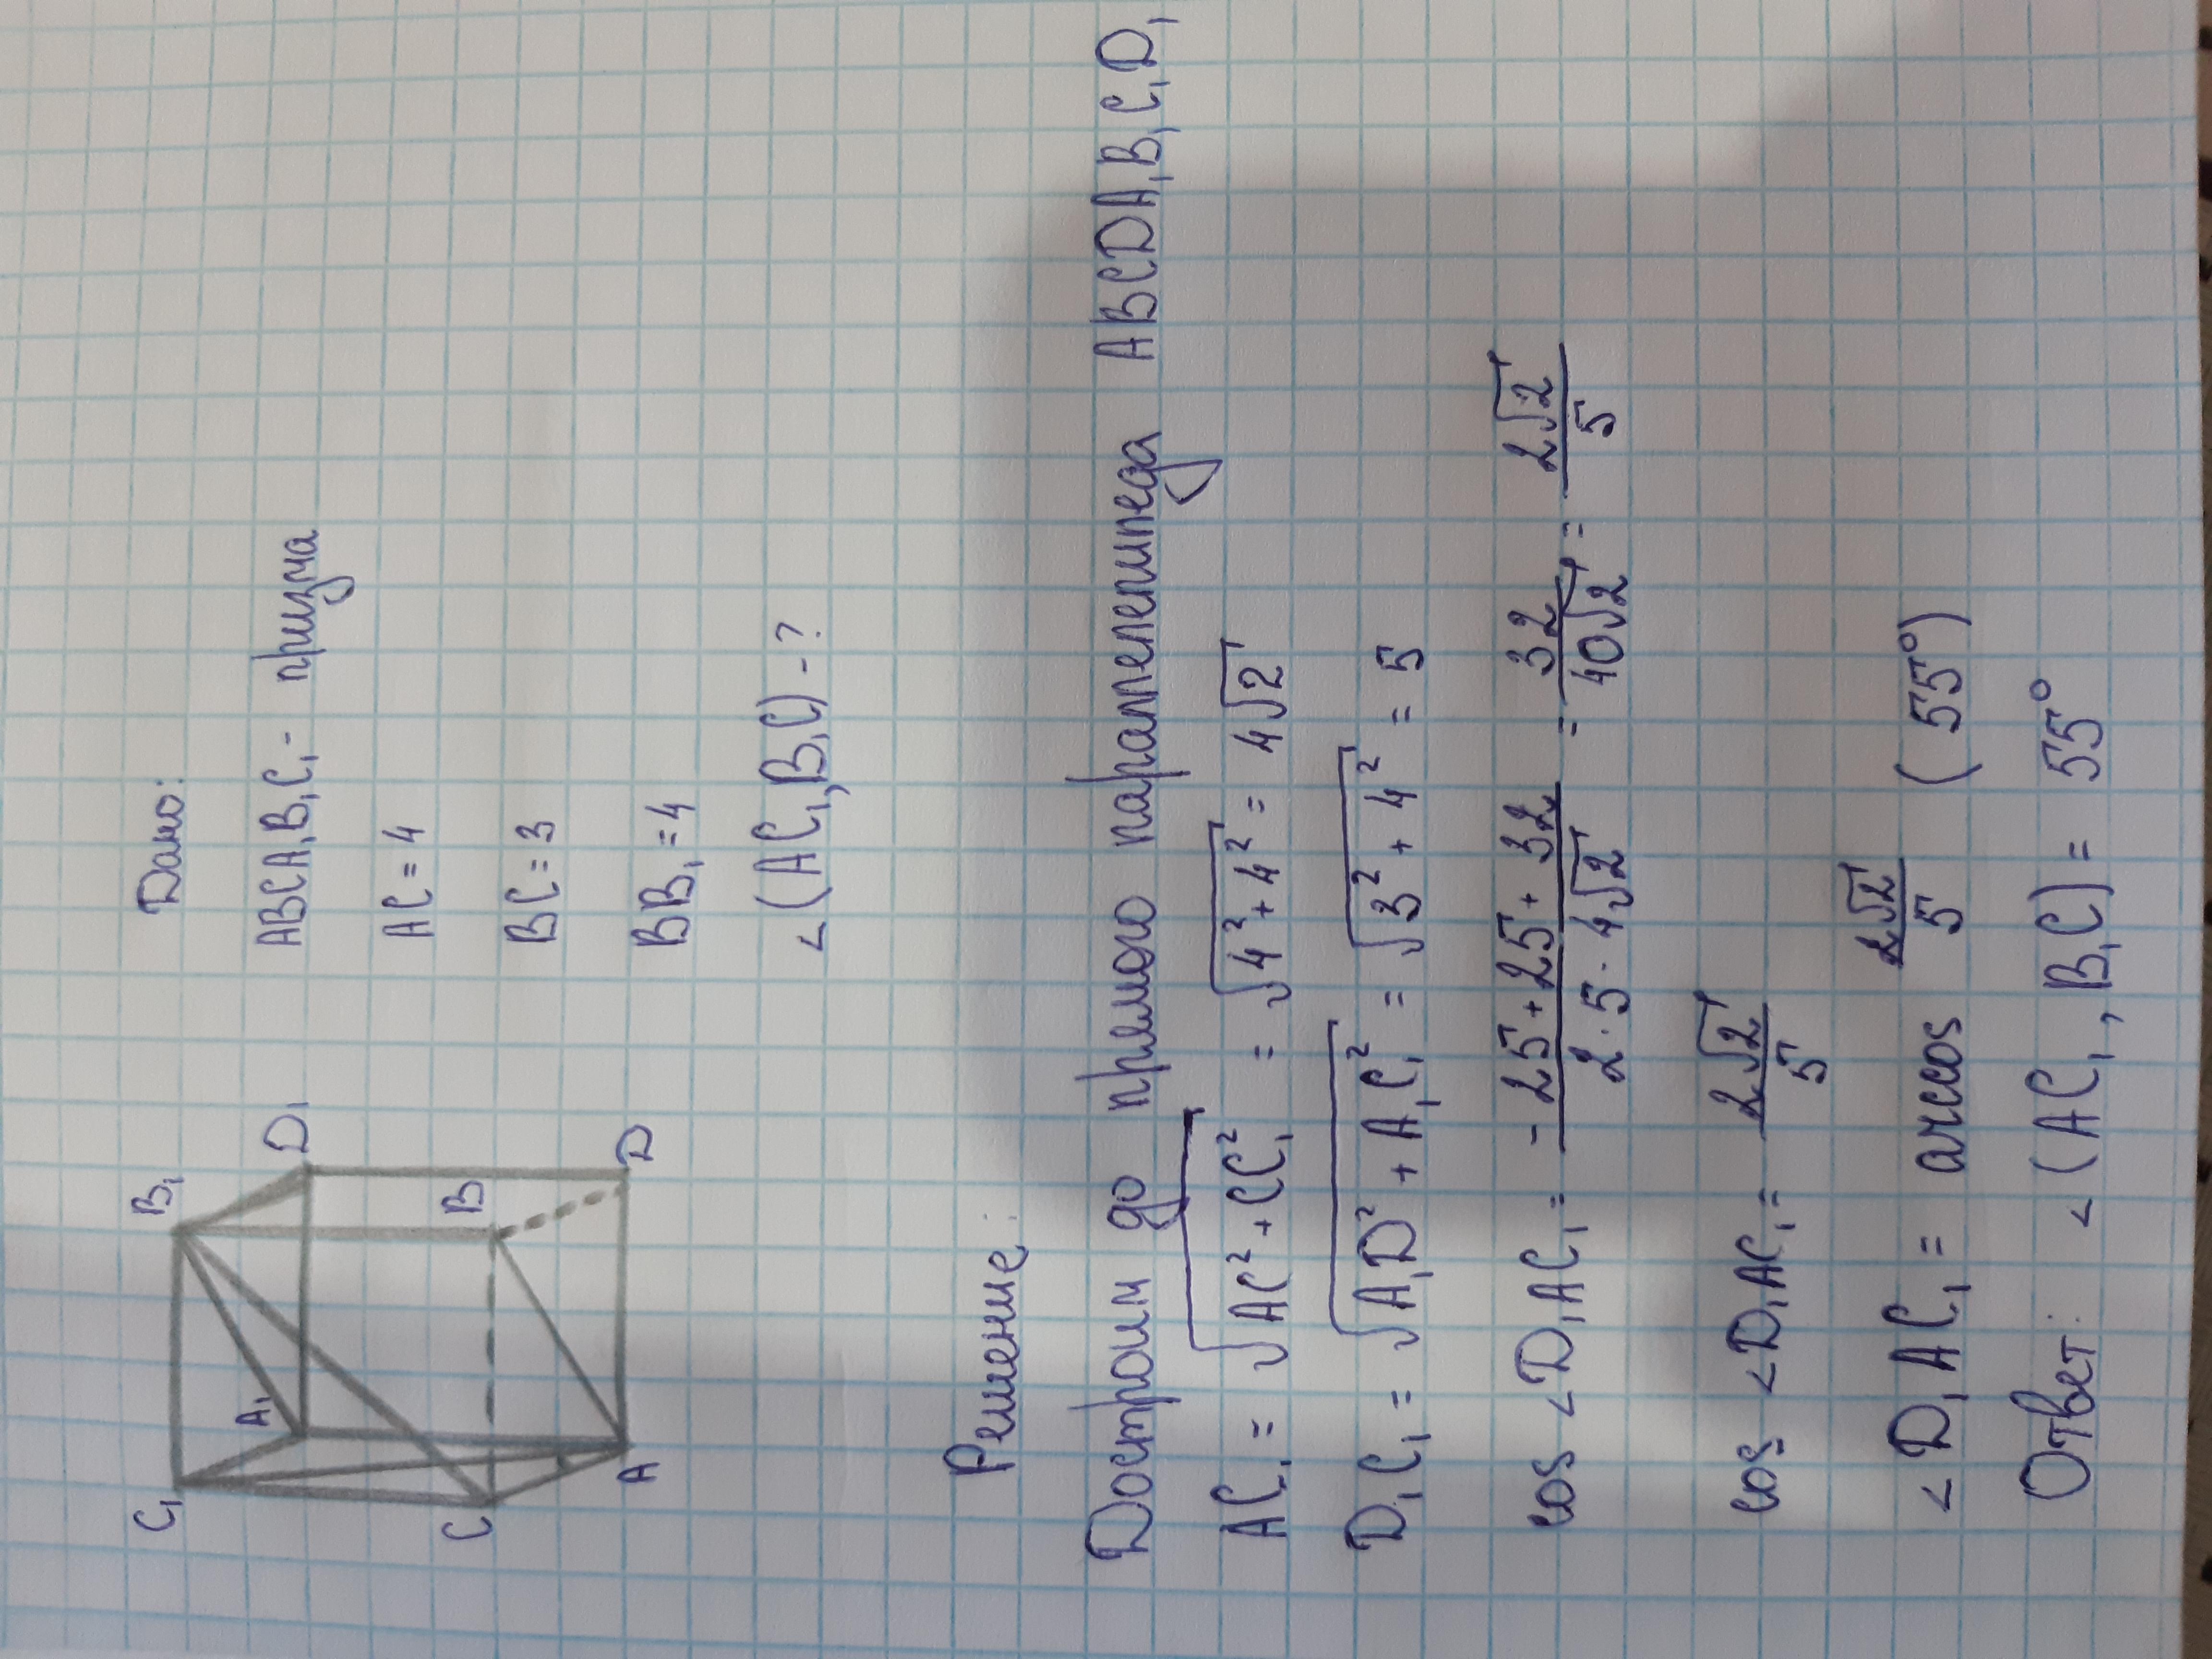 Дано:
ABCA₁B₁C₁ - призма
AC = 4
BC = 3
BB₁ = 4
∠(AC₁, B₁C) - ?
C₁
B₁
A₁
D₁
C
B
A
D
Решение:
Достроим до прямого параллелепипеда ABCDA₁B₁C₁D₁
AC₁ = √(AC² + CC₁²) = √(4² + 4²) = 4√2
D₁C₁ = √(A₁D² + A₁C₁²) = √(3² + 4²) = 5
cos ∠D₁AC₁ = (-25 + 25 + 32)/(2 · 5 · 4√2) = 32/(40√2) = 2√2/5
cos ∠D₁AC₁ = 2√2/5
∠D₁AC₁ = arccos 2√2/5 (55°)
Ответ: ∠(AC₁, B₁C) = 55°